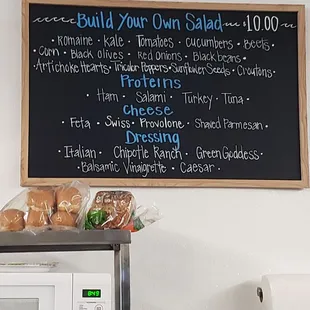 Build Your Own Salad $10.00
Romaine · Kale · Tomatoes · Cucumbers · Beets ·
Corn · Black Olives · Red Onions · Black beans ·
Artichoke Hearts · Tricolor Peppers · Sunflower Seeds · Croutons
Proteins
· Ham · Salami · Turkey · Tuna ·
Cheese
· Feta · Swiss · Provolone · Shaved Parmesan ·
Dressing
· Italian · Chipotle Ranch · Green Goddess ·
· Balsamic Vinaigrette · Caesar ·
8:49